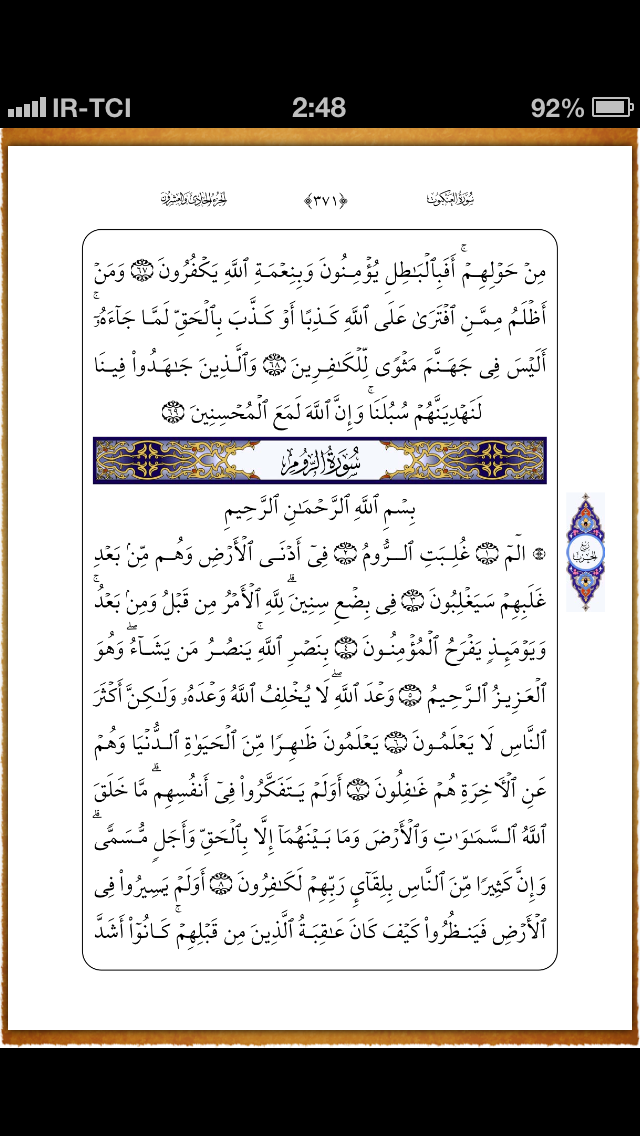 IR-TCI 2:48 92%
سُورَةُ العَنكَبُوت ﴿٣٧١﴾ الجُزءُ الحَادِي وَالعِشرُون
مِنْ حَوْلِهِمْۚ أَفَبِٱلْبَـٰطِلِ يُؤْمِنُونَ وَبِنِعْمَةِ ٱللَّهِ يَكْفُرُونَ ٦٧ وَمَنْ
أَظْلَمُ مِمَّنِ ٱفْتَرَىٰ عَلَى ٱللَّهِ كَذِبًا أَوْ كَذَّبَ بِٱلْحَقِّ لَمَّا جَآءَهُۥٓۚ
أَلَيْسَ فِى جَهَنَّمَ مَثْوًى لِّلْكَـٰفِرِينَ ٦٨ وَٱلَّذِينَ جَـٰهَدُوا۟ فِينَا
لَنَهْدِيَنَّهُمْ سُبُلَنَاۚ وَإِنَّ ٱللَّهَ لَمَعَ ٱلْمُحْسِنِينَ ٦٩
سُورَةُ الرُّومِ
بِسْمِ ٱللَّهِ ٱلرَّحْمَـٰنِ ٱلرَّحِيمِ
۞ الٓمٓ ١ غُلِبَتِ ٱلرُّومُ ٢ فِىٓ أَدْنَى ٱلْأَرْضِ وَهُم مِّنۢ بَعْدِ
غَلَبِهِمْ سَيَغْلِبُونَ ٣ فِى بِضْعِ سِنِينَۗ لِلَّهِ ٱلْأَمْرُ مِن قَبْلُ وَمِنۢ بَعْدُۚ
وَيَوْمَئِذٍ يَفْرَحُ ٱلْمُؤْمِنُونَ ٤ بِنَصْرِ ٱللَّهِۚ يَنصُرُ مَن يَشَآءُۖ وَهُوَ
ٱلْعَزِيزُ ٱلرَّحِيمُ ٥ وَعْدَ ٱللَّهِۖ لَا يُخْلِفُ ٱللَّهُ وَعْدَهُۥ وَلَـٰكِنَّ أَكْثَرَ
ٱلنَّاسِ لَا يَعْلَمُونَ ٦ يَعْلَمُونَ ظَـٰهِرًا مِّنَ ٱلْحَيَوٰةِ ٱلدُّنْيَا وَهُمْ
عَنِ ٱلْـَٔاخِرَةِ هُمْ غَـٰفِلُونَ ٧ أَوَلَمْ يَتَفَكَّرُوا۟ فِىٓ أَنفُسِهِمۗ مَّا خَلَقَ
ٱللَّهُ ٱلسَّمَـٰوَٰتِ وَٱلْأَرْضَ وَمَا بَيْنَهُمَآ إِلَّا بِٱلْحَقِّ وَأَجَلٍ مُّسَمًّىۗ
وَإِنَّ كَثِيرًا مِّنَ ٱلنَّاسِ بِلِقَآئِ رَبِّهِمْ لَكَـٰفِرُونَ ٨ أَوَلَمْ يَسِيرُوا۟ فِى
ٱلْأَرْضِ فَيَنظُرُوا۟ كَيْفَ كَانَ عَـٰقِبَةُ ٱلَّذِينَ مِن قَبْلِهِمْۚ كَانُوٓا۟ أَشَدَّ